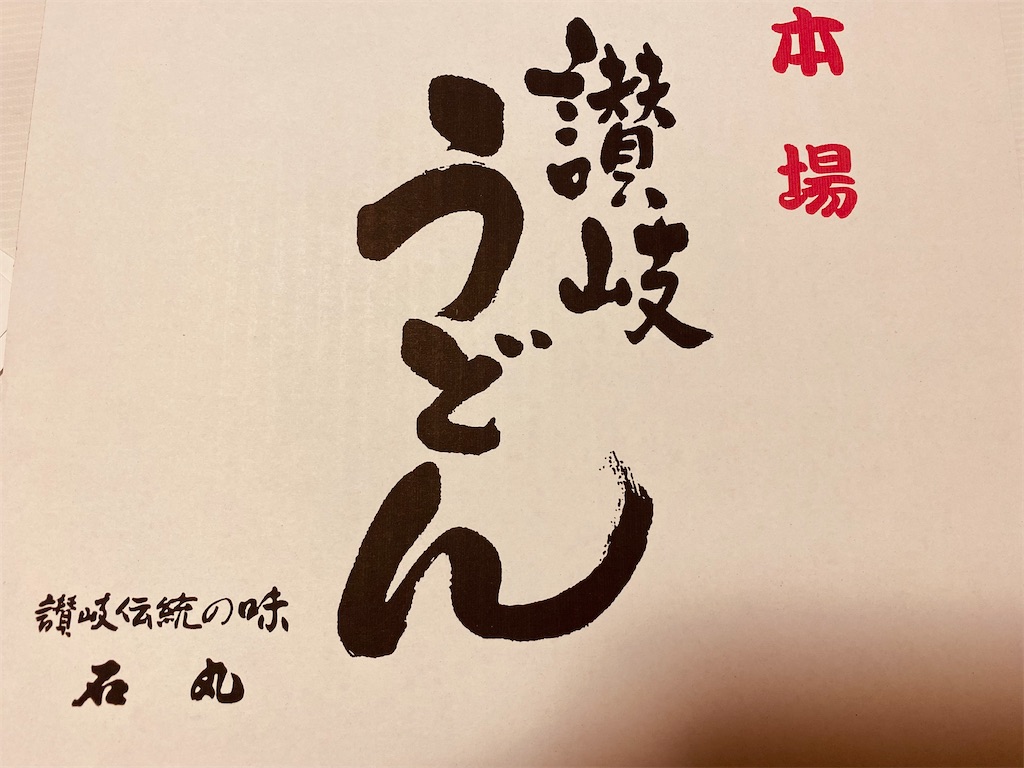 本場
讃岐
うどん
讃岐伝統の味
石丸